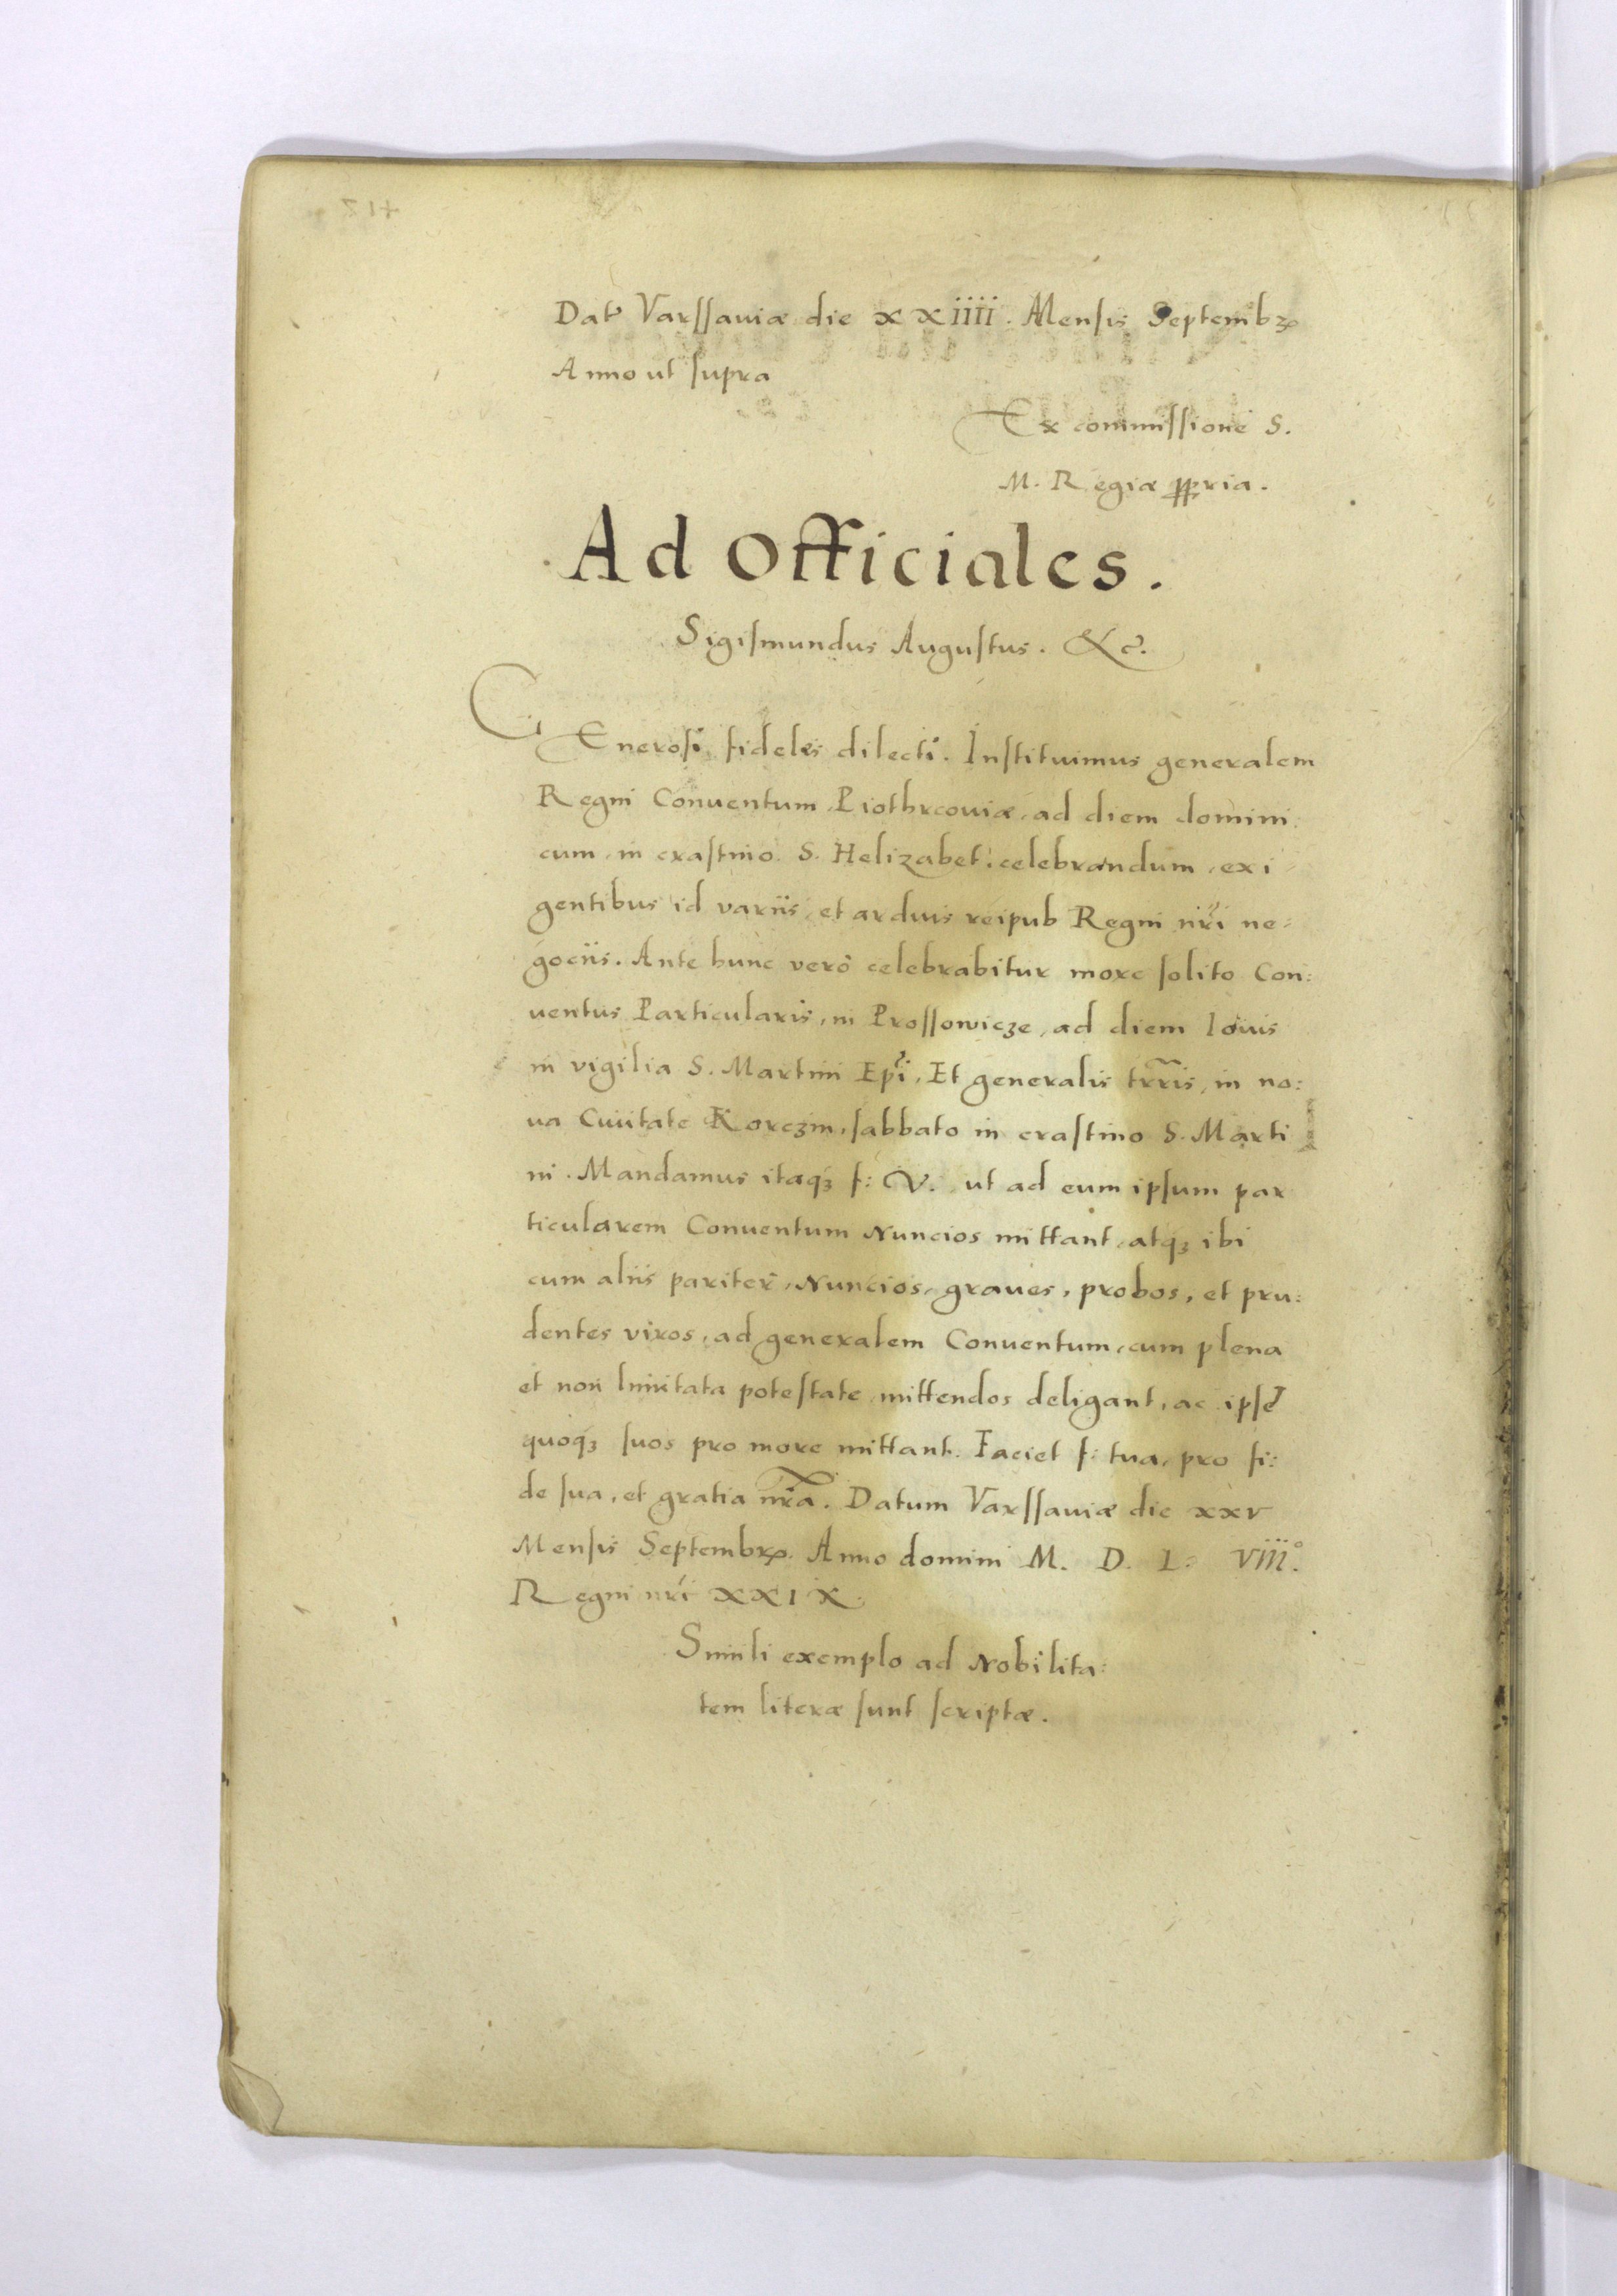 Dat Varssauiæ die XXIIII. Mensis Septembꝝ
Anno ut supra
Ex commissione S.
M. Regiæ ꝓpria.
Ad Officiales.
Sigismundus Augustus. &c.
GEnerosi fideles dilecti. Instituimus generalem
Regni Conuentum Piothrcouiæ, ad diem domini:
cum, in crastino S. Helizabet: celebrandum, exi
gentibus id variis, et arduis reipub Regni nr̃i ne:
gociis. Ante hunc verò celebrabitur more solito Con:
uentus Particularis, in Prossowicze, ad diem Iouis
in vigilia S. Martini Ep̃i, Et generalis trr̃is, in no:
ua Ciuitate Korczin, sabbato in crastino S. Marti
ni. Mandamus itaqꝫ f: V. ut ad eum ipsum par
ticularem Conuentum Nuncios mittant, atqꝫ ibi
cum aliis pariter, Nuncios, graues, probos, et pru:
dentes viros, ad generalem Conuentum, cum plena
et non limitata potestate mittendos deligant, ac ipsę
quoqꝫ suos pro more mittant. Faciet f: tua, pro fi:
de sua, et gratia nr̃a. Datum Varssauiæ die XXV
Mensis Septembꝝ. Anno domini M. D. L: VIII°.
Regni nr̃i XXIX.
Simili exemplo ad Nobilita:
tem literæ sunt scriptæ.